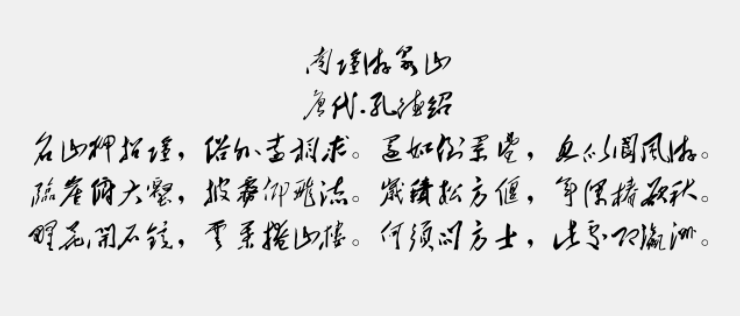 南隐游泉山
唐代.孔德绍
名山狎招隐,俗外相求。还如倒景,阆风游。
临崖俯大壑,披雾仰飞流。岁积松方偃,年深椿欲秋。
野花开石镜,云叶掩山楼。何须问方士,此处即瀛洲。